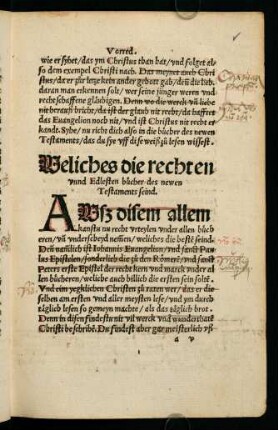 Vorred.
wie er syhet / das ym Christus than hat / vnd folget al⸗
so dem exempel Christi nach. Das meynet auch Chri
stus / da er zur letze kein ander gebott gab / deñ die lieb /
daran man erkennen solt / wer seine jünger weren vnd
rechtschaffene gläubigen. Denn wo die werck vñ liebe
nit herauß bricht / da ist der glaub nit recht / da hafftet
das Euangelion noch nit / vnd ist Christus nit recht er
kandt. Syhe / nu richt dich also in die bücher des newen
Testaments / das du sye vff dise weiß zů lesen wissest.
Weliches die rechten
vnnd Edlesten bücher des newen
Testaments seind.
AVsz disem allem
kanstu nu recht vrteylen vnder allen büch
eren / vñ vnderscheyd nemen / weliches die beste seind
Deñ nämlich ist Iohannis Euangelion / vnd sanct Pau
lus Epistolen / sonderlich die zů den Römern / vnd sanct
Peters erste Epistel der recht kern vnd marck vnder al
len bücheren / weliche auch billich die ersten sein solte.
Vnd eim yegklichen Christen zů raten wer / das er die
selben am ersten vnd aller meysten lese / vnd ym durch
täglich lesen so gemeyn machte / als das täglich brot.
Denn in disen findestu nit vil werck vnd wunderthate
Christi beschribē. Du findest aber gar meisterlich vß
a v